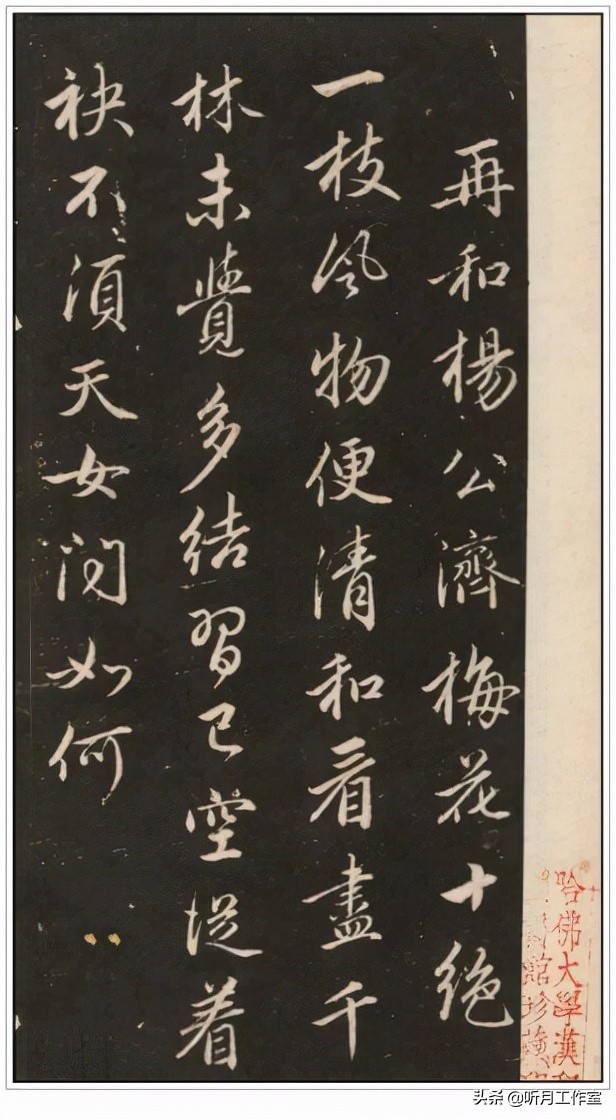 再和楊公濟梅花十絕
一枝風物便清和看盡千
林未覺多結習已空從着
袂不湏天女問如何
哈佛大學漢和
館珍藏
头条 @听月工作室